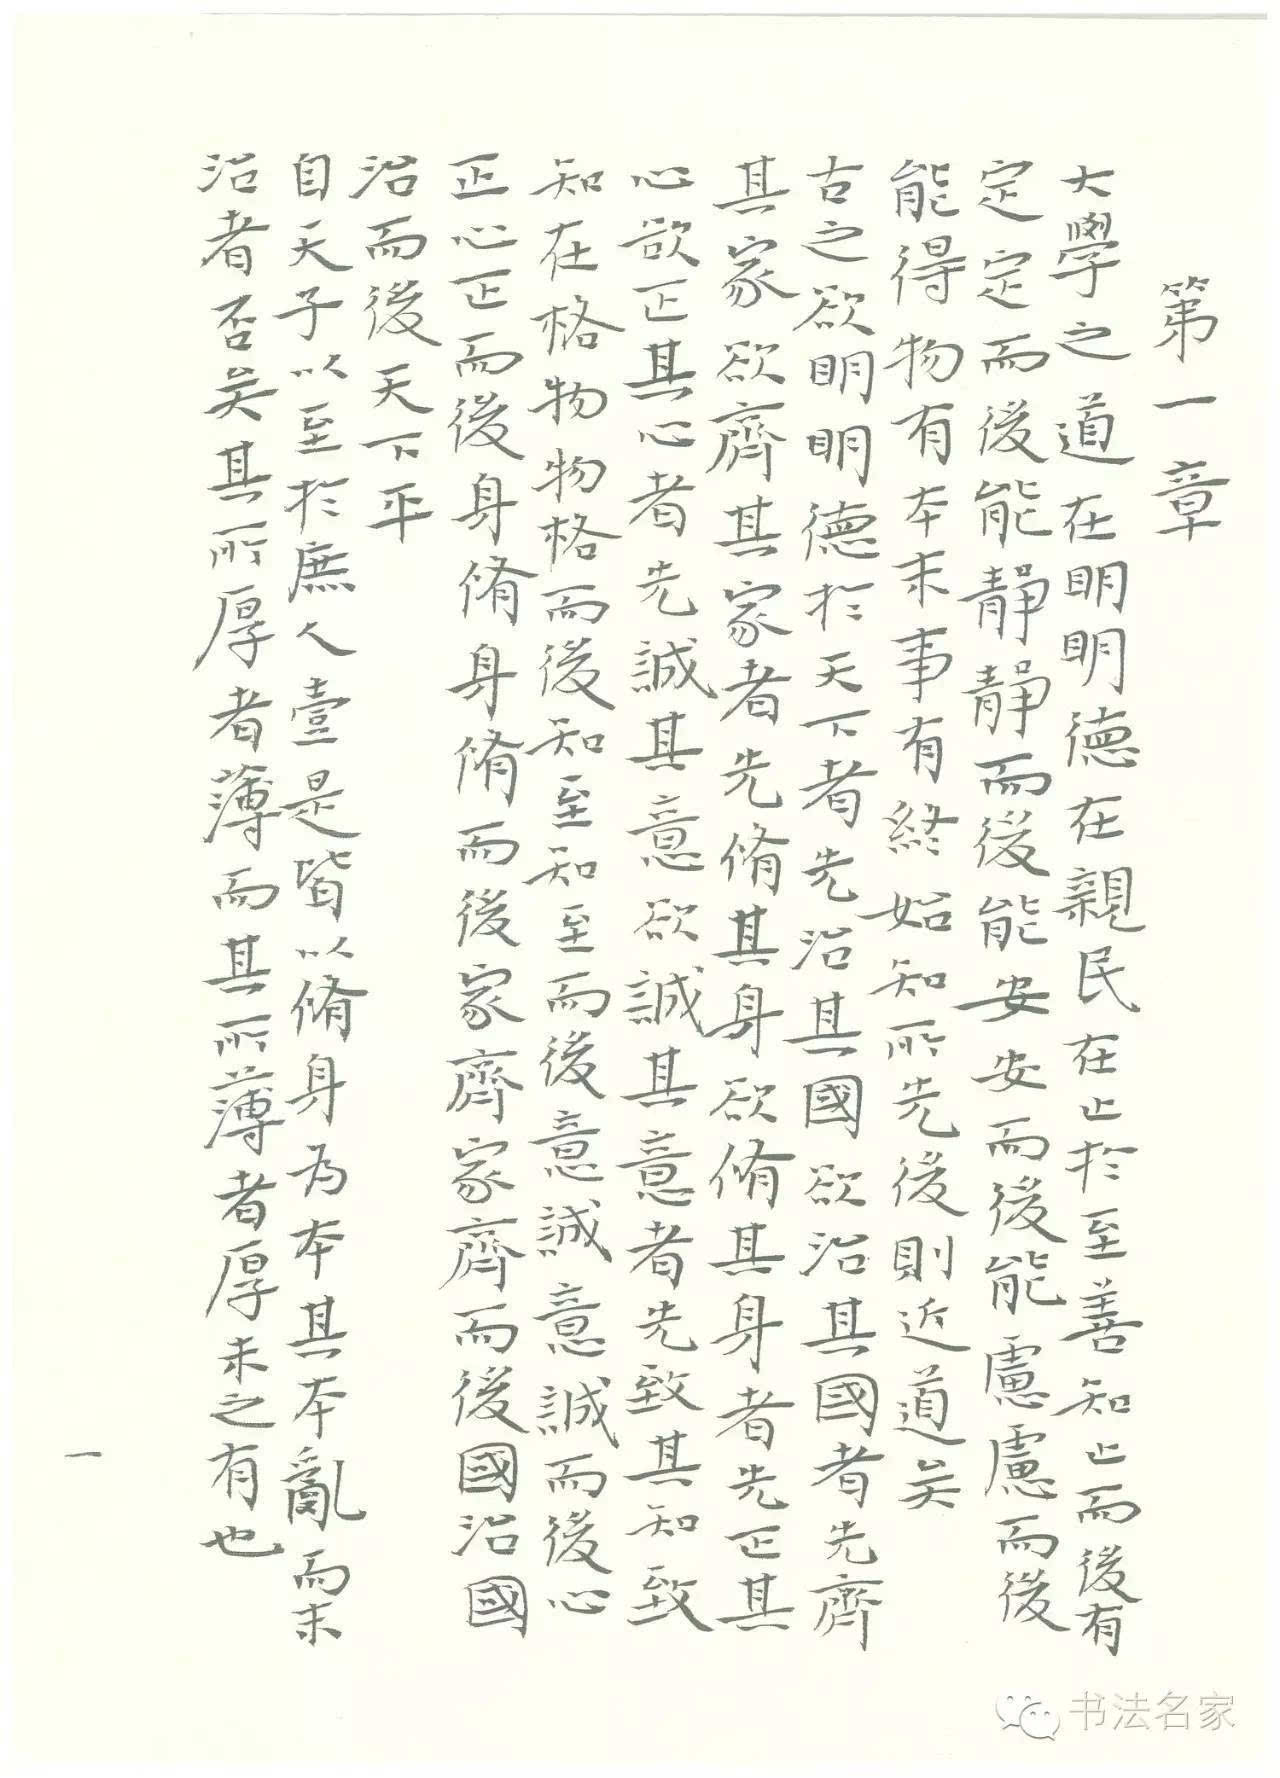 第一章
大學之道在明明德在親民在止於至善知止而後有
定定而後能靜靜而後能安安而後能慮慮而後
能得物有本末事有終始知所先後則近道矣
古之欲明明德於天下者先治其國欲治其國者先齊
其家欲齊其家者先脩其身欲脩其身者先正其
心欲正其心者先誠其意欲誠其意者先致其知致
知在格物物格而後知至知至而後意誠意誠而後心
正心正而後身脩身脩而後家齊家齊而後國治國
治而後天下平
自天子以至於庶人壹是皆以脩身為本其本亂而末
治者否矣其所厚者薄而其所薄者厚未之有也
一
书法名家